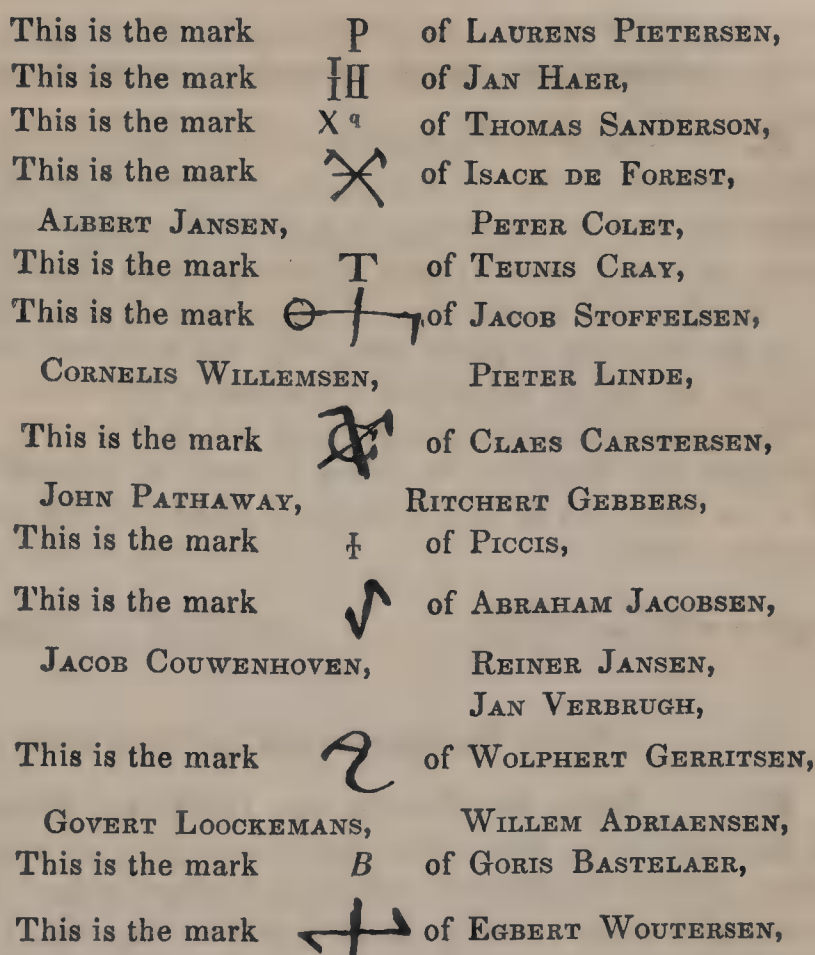 This is the mark P of LAURENS PIETERSEN,
This is the mark IH of JAN HAER,
This is the mark X q of THOMAS SANDERSON,
This is the mark of ISACK DE FOREST,
ALBERT JANSEN, PETER COLET,
This is the mark T of TEUNIS CRAY,
This is the mark of JACOB STOFFELSEN,
CORNELIS WILLEMSEN, PIETER LINDE,
This is the mark of CLAES CARSTERSEN,
JOHN PATHAWAY, RITCHERT GEBBERS,
This is the mark of PICCIS,
This is the mark of ABRAHAM JACOBSEN,
JACOB COUWENHOVEN, REINER JANSEN,
JAN VERBRUGH,
This is the mark of WOLPHERT GERRITSEN,
GOVERT LOOCKEMANS, WILLEM ADRIAENSEN,
This is the mark B of GORIS BASTELAER,
This is the mark of EGBERT WOUTERSEN,